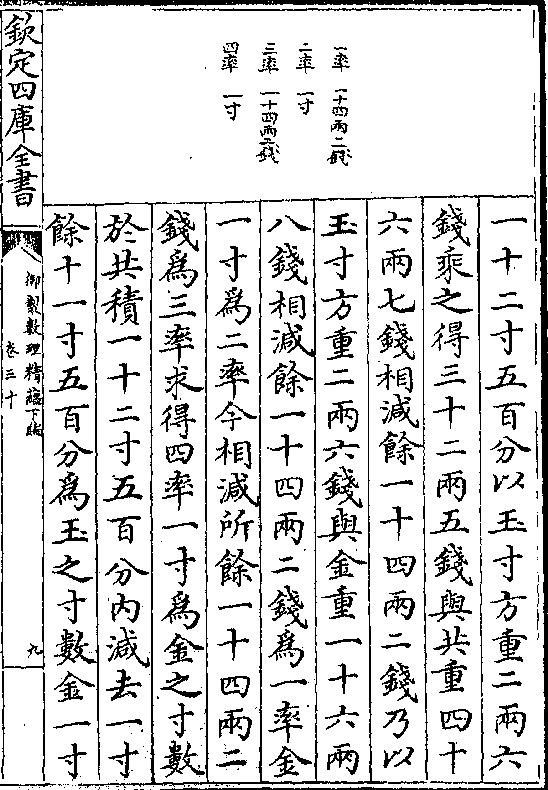 一率 一十四兩二錢
二率 一寸
三率 一十四兩二錢
四率 一寸
一十二寸五百分以玉寸方重二兩六
錢乘之得三十二兩五錢與共重四十
六兩七錢相減餘一十四兩二錢乃以
玉寸方重二兩六錢與金重一十六兩
八錢相減餘一十四兩二錢為一率金
一寸為二率今相減所餘一十四兩二
錢為三率求得四率一寸為金之寸數
於共積一十二寸五百分内減去一寸
餘十一寸五百分為玉之寸數金一寸
欽定四庫全書
御製數理精蘊下編
卷三十
九